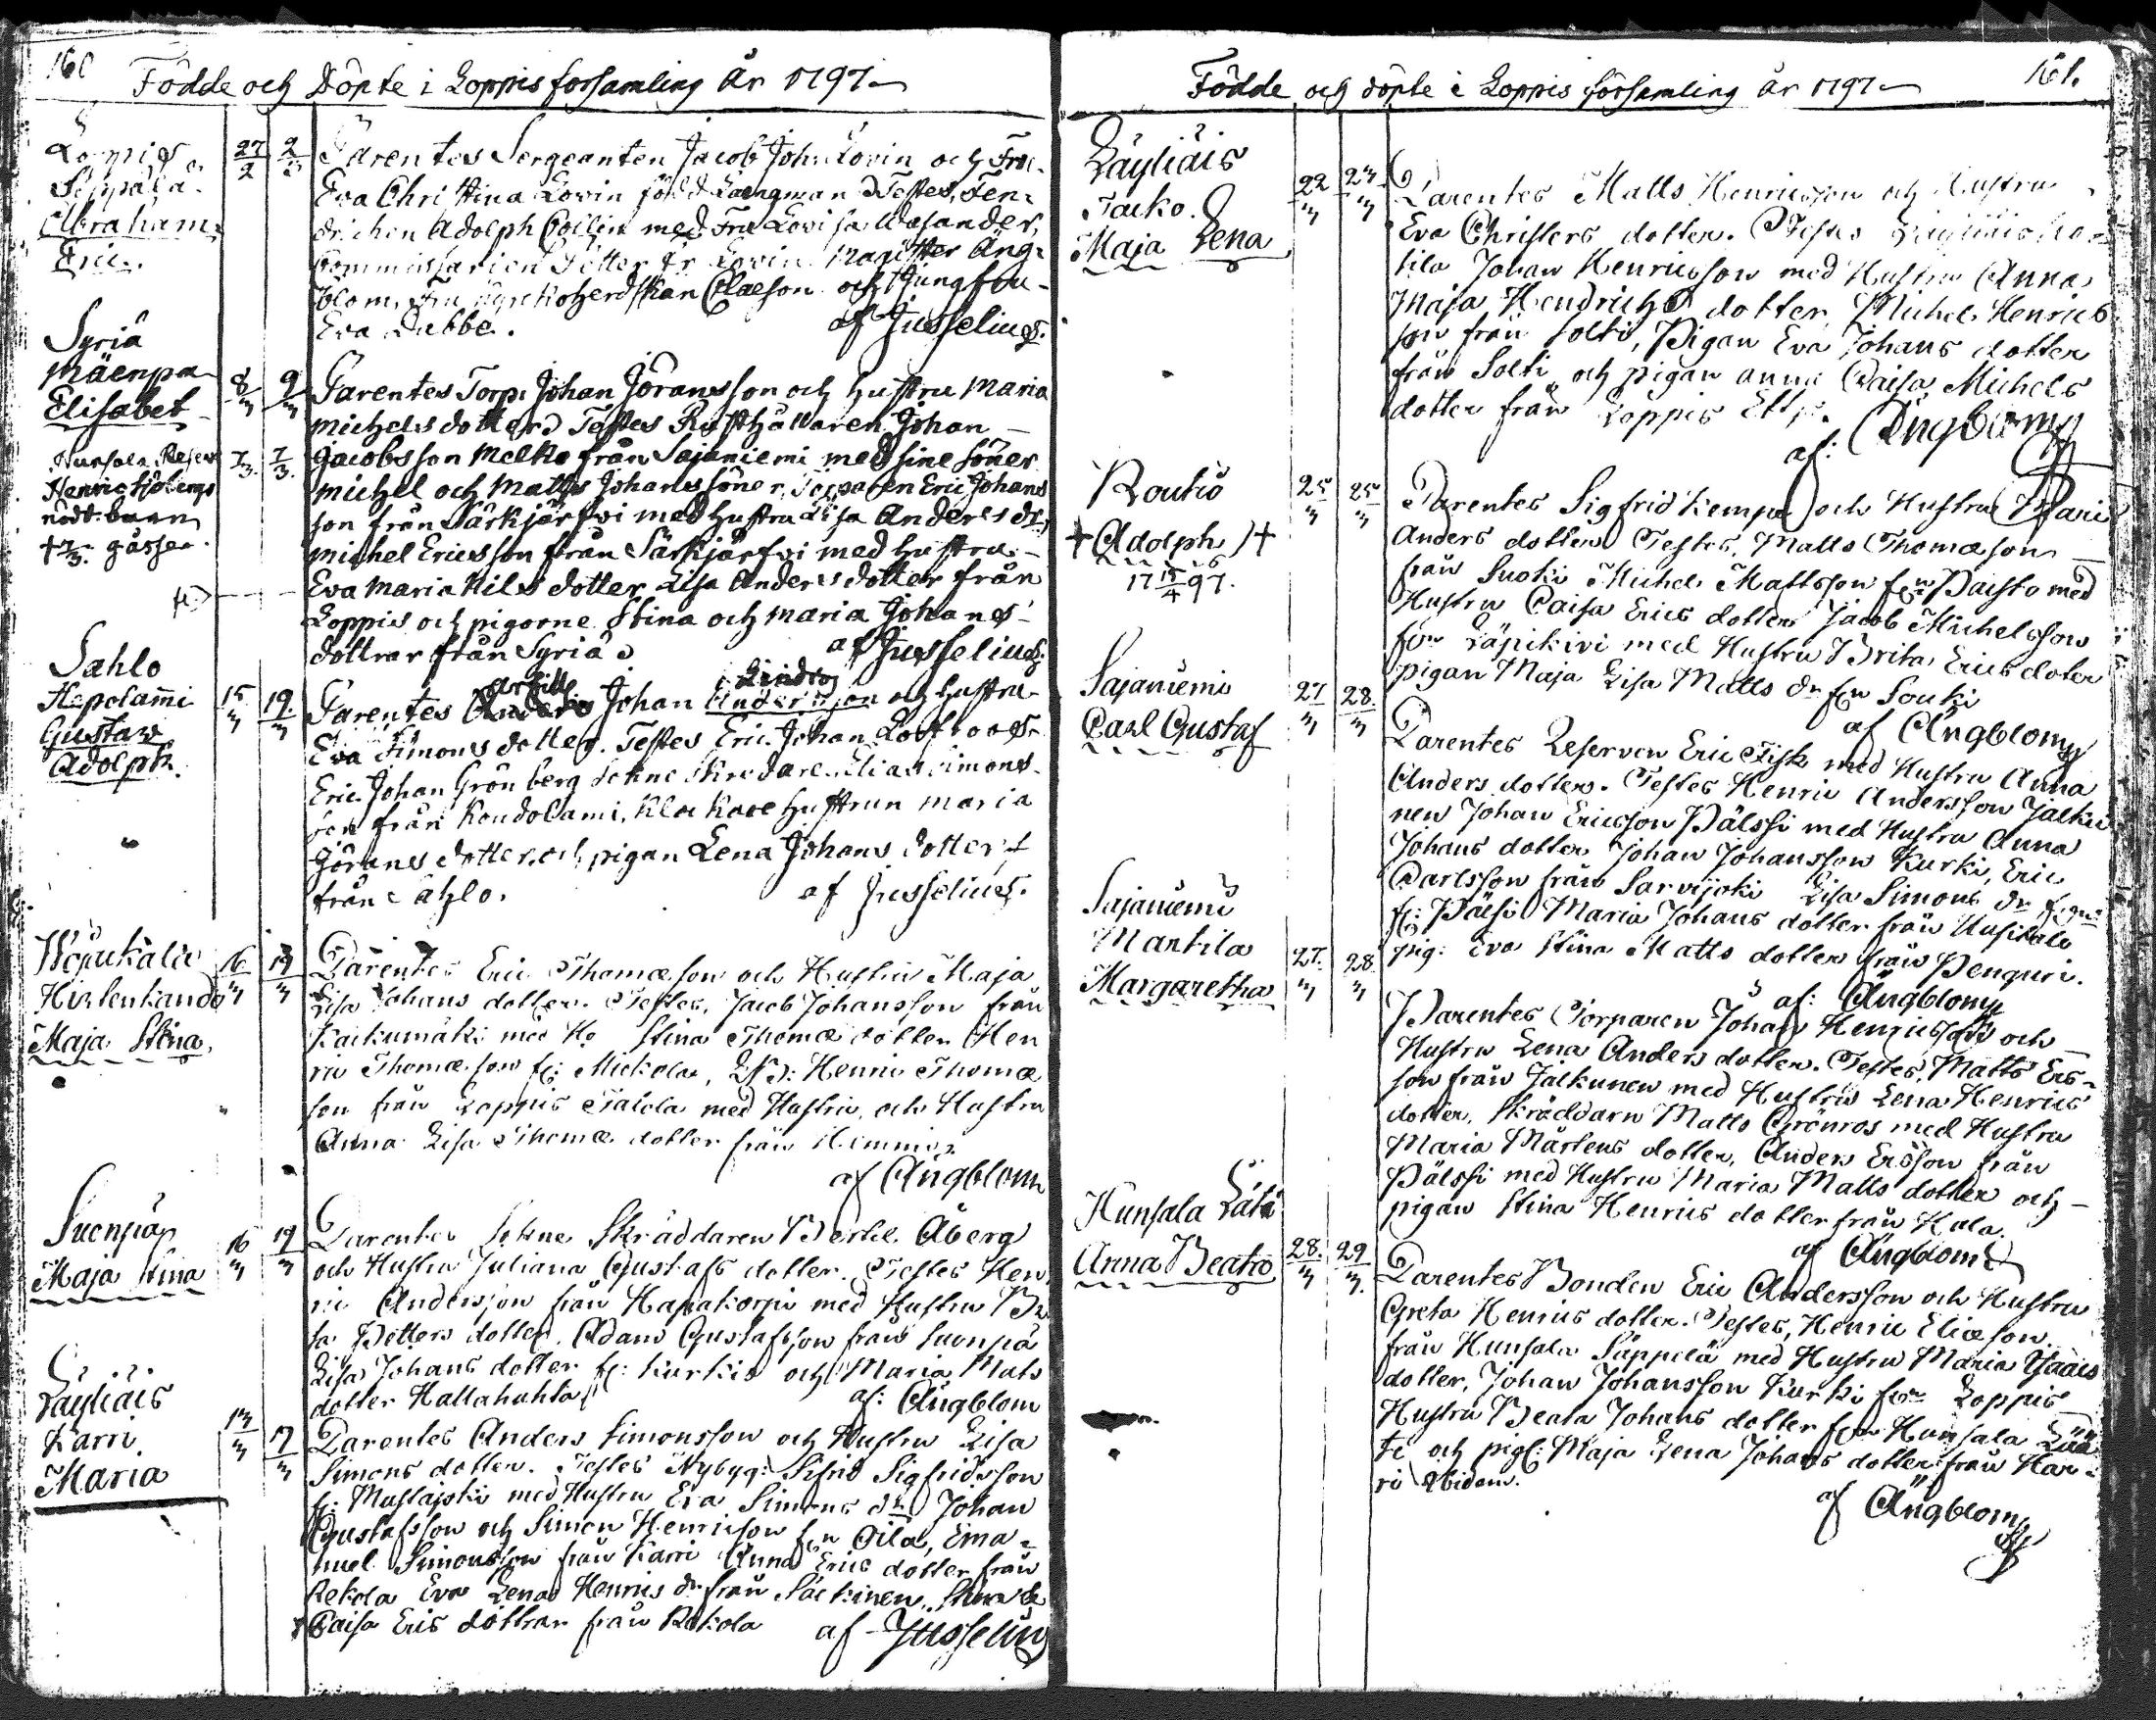 160
Födde och Döpte i Loppis församling År 1797
Loppis
Seppälä
Abraham
Eric.
27/2 2/3
Parentes Sergeanten Jacob Joh: Lovin och Fru
Eva Christina Lovin född Langman Testes, Fen-
drichen Adolph Collin med Fru Lovisa Wasander,
Commissarien Petter Lovin Magister Äng-
blom, Fru Kyrkoherdskan Claeson och Jungfru
Eva Dabbe. af Jusselius.
Syriä
Mäenpä
Elisabet
8/3 9/3
Parentes Torp: Johan Jöransson och hustru Maria
Michelsdotter Testes Rusthållaren Johan
Jacobsson Melko från Sajaniemi med sine söner
Michel och Matts Johans söner, Torparen Eric Johans
son från Särkjärfvi med hustru Lisa Anders dr,
Michel Ericsson från Särkjärfvi med hustru
Eva Maria Nils dotter Lisa Anders dotter från
Loppis och pigorne Stina och Maria Johans
döttrar från Syriä af Jusselius.
Hunsala Reserv
Henric Hjelings
nödd. barn
† 7/3. gåsse
7/3. 7/3.
Sahlo
Hepolammi
Gustaw
Adolph.
15/3 19/3
Parentes Johan Lindros och hustru
Eva Simons dotter. Testes Eric Johan
Eric Johan Grönberg Sokne Skredare Elias Simons-
son från Kondolami, Klockare hustrun Maria
Görans dotter, och pigan Lena Johans dotter
från Sahlo. af Jusselius.
Hirlenkando
Maja Stina,
16/3 19/3
Parentes Eric Thomæson och Hustru Maja
Lisa Johans dotter. Testes, Jacob Johansson från
Kaukumäki med Ho Stina Thomæ dotter Hen
ric Thomæson fr: Mickola, Henric Thomæ
son från Loppis Talola med Hustru, och Hustru
Anna Lisa Thomæ dotter från
af Ängblom
Suenpää
Maja Stina
16/3 19/3
Parentes Sokne Skräddaren Bertil Åberg
och Hustru Juliana Gustafs dotter. Testes Hen
ric Andersson från Hapakorpi med Hustru
Petters dotter. Adam Gustafsson från Suenpä
Lisa Johans dotter fr: Kurkio och Maria Mats
dotter Hallahuhta af: Ängblom
Läyliäis
Karri
Maria
13/3 17/3
Parentes Anders Simonsson och Hustru Lisa
Simons dotter. Testes Nybyg: Sifrid Sigfridsson
fr: Mustajoki med Hustru Eva Simons dr Johan
Gustafsson och Simon Henricson frn Oila, Ema-
nuel Simonsson från Karri Anna Erics dotter från
Rekola Eva Lena Henrics dr från Säckinen,
Caisa Erics döttrar från Rekola af Jusselius
161.
Födde och döpte i Loppis församling år 1797
Läyliäis
Tacko.
Maja Lena
22/3 23/3
Parentes Matts Henricsson och Hustru
Eva Christers dotter. Testes
tila Johan Henricsson med Hustru Anna
Maja Hendrichs dotter, Michel Henrics
son från Solti, Pigan Eva Johans dotter
från Solti och pigan Anna Caisa Michels
dotter från Loppis
af: Ängblom
Routio
† Adolph †
17 15/4 97.
25/3 25/3
Parentes Sigfrid Kempe och Hustru Mari
Anders dotter Testes, Matts Thomæson
från Suoki Michel Mattsson frn Paisto med
Hustru Caisa Erics dotter Jacob Michelsson
frn Läpikivi med Hustru Brita Erics dotter
pigan Maja Lisa Matts dr frn Souki
af Ängblom
Sajaniemi
Carl Gustaf
27/3 28/3
Parentes Reserven Eric Fisk med Hustru Anna
Anders dotter. Testes Henric Andersson Jalku
nen Johan Ericsson Pälssi med Hustru Anna
Johans dotter Johan Johansson Kurki, Eric
Carlsson från Sarvijoki Lisa Simons dr
fr: Pälsi Maria Johans dotter från Uusitalo
pig: Eva Stina Matts dotter från Penguri.
af: Ängblom
Sajaniemi
Mantila
Margaretha
27/3 28/3
Parentes Torparen Johan Henricsson och
Hustru Lena Anders dotter. Testes, Matts Ers-
son från Jalkunen med Hustru Lena Henrics
dotter, Skräddarn Matts Grönros med Hustru
Maria Mårtens dotter, Anders Ersson från
Pälssi med Hustru Maria Matts dotter och
pigan Stina Henrics dotter från Hula.
af Ängblom
Hunsala Lätä
Anna Beata
28/3 29/3
Parentes Bonden Eric Andersson och Hustru
Greta Henrics dotter. Testes, Henric Eliæson
från Hunsala Säppelä med Hustru Maria Isaacs
dotter, Johan Johansson Kurki frn Loppis
Hustru Beata Johans dotter frn Hunsala Lää
te och pig: Maja Lena Johans dotter från Har-
ri Ibidem.
af Ängblom